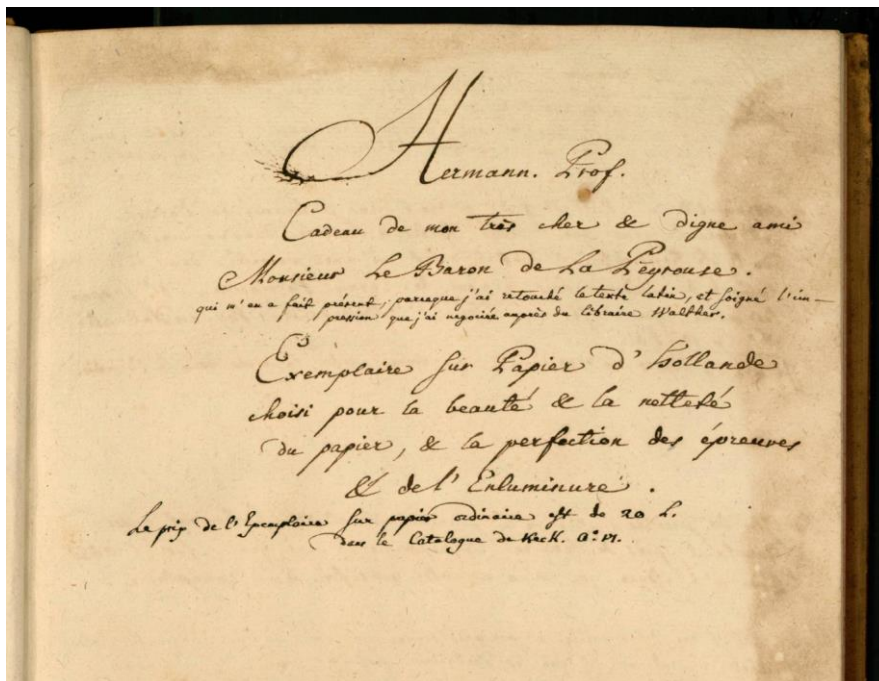 Hermann. Prof.
Cadeau de mon très cher & digne ami
Monsieur Le Baron de La Peyrouse.
qui m'en a fait présent, parceque j'ai retouché le texte latin, et soigné l'im-
pression que j'ai negociée auprès du libraire Walther.
Exemplaire sur Papier d'hollande
choisi pour la beauté & la netteté
du papier, & la perfection des épreuves
& de l'Enluminure.
Le prix de l'Exemplaire sur papier ordinaire est de 20 L.
dans le Catalogue de Keck.